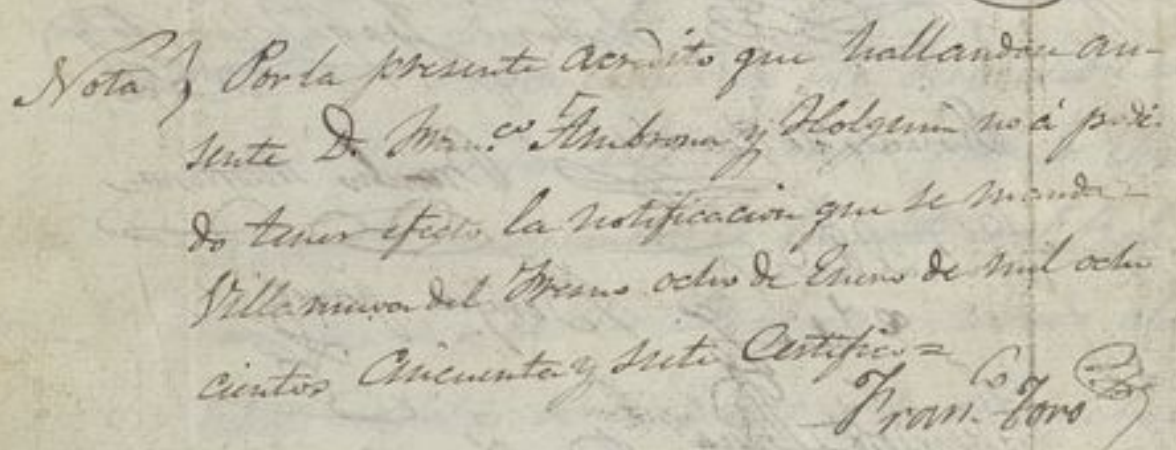 Nota } Por la presente acredito que hallandose au-
sente D. Man.co Ambrona y Holguin no á podi-
do tener efecto la notificacion que se manda =
Villanueva del Fresno ocho de Enero de mil ocho
cientos Cincuenta y siete Certifico =
Fran.co Toro